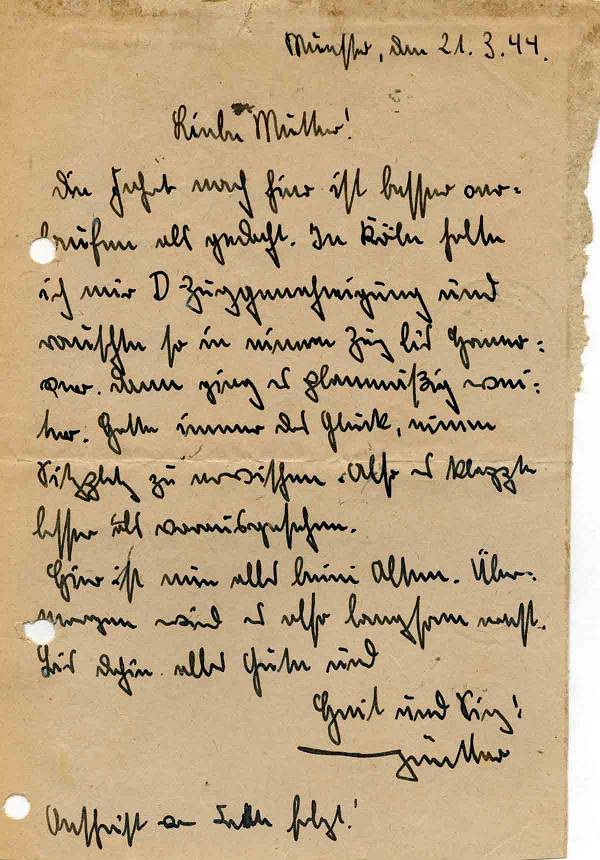 Munster, den 21.3.44.
Liebe Mutter!
Die Fahrt nach hier ist besser ver-
laufen als gedacht. In Köln holte
ich mir D-Zuggenehmigung und
rauschte so in einem Zug bis Hanno-
ver. Dann ging es planmäßig wei-
ter. Hatte immer das Glück, einen
Sitzplatz zu erwischen. Also es klappte
besser als vorausgesehen.
Hier ist nun alles beim Alten. Über-
morgen wird es also langsam ernst.
Bis dahin alles Gute und
Heil und Sieg!
Günther
Anschrift folgt!